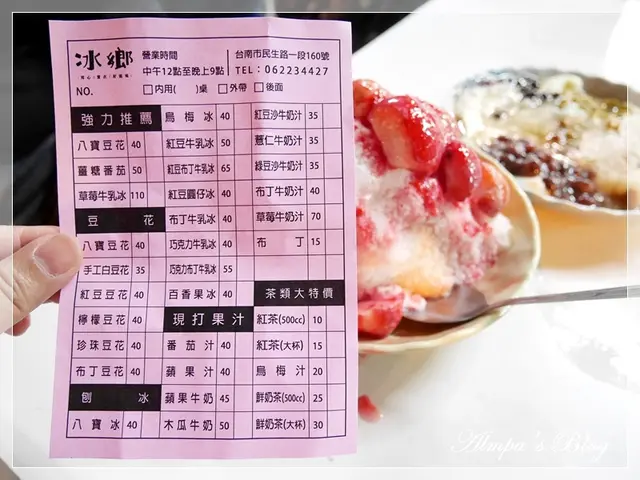 冰鄉
營業時間
中午12點至晚上9點
台南市民生路一段160號
TEL：062234427
NO.
□內用( )桌 □外帶 □後面
強力推薦
八寶豆花 40
薑糖番茄 50
草莓牛乳冰 110
豆花
八寶豆花 40
手工白豆花 35
紅豆豆花 40
檸檬豆花 40
珍珠豆花 40
布丁豆花 40
刨冰
八寶冰 40
烏梅冰 40
紅豆牛乳冰 50
紅豆布丁牛乳冰 65
紅豆圓仔冰 40
布丁牛乳冰 50
巧克力牛乳冰 40
巧克力布丁牛乳冰 55
百香果冰 40
現打果汁
番茄汁 40
蘋果汁 40
蘋果牛奶 45
木瓜牛奶 50
紅豆沙牛奶汁 35
薏仁牛奶汁 35
綠豆沙牛奶汁 35
布丁牛奶汁 40
草莓牛奶汁 70
布丁 15
茶類大特價
紅茶(500cc) 10
紅茶(大杯) 15
烏梅汁 20
鮮奶茶(500cc) 25
鮮奶茶(大杯) 30
Almpa's Blog